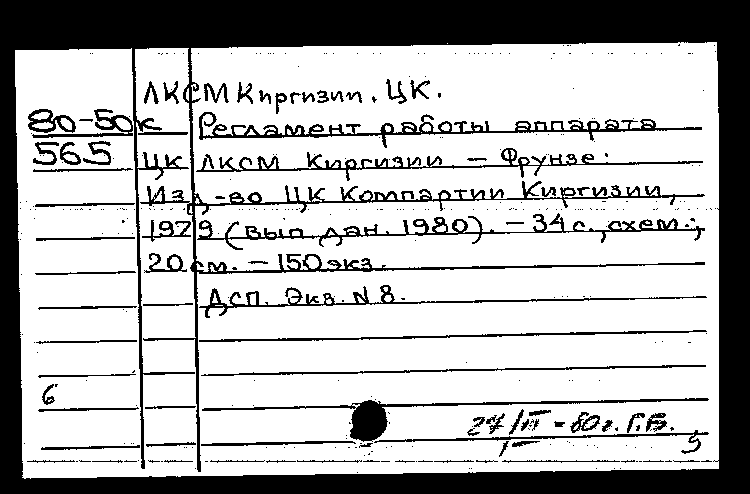 ЛКСМ Киргизии. ЦК.
80-50к Регламент работы аппарата
565 ЦК ЛКСМ Киргизии. – Фрунзе:
Изд-во ЦК Компартии Киргизии,
1979 (вып. дан. 1980). – 34 с., схем.;
20 см. – 150 экз.
Дсп. Экз. N 8.
6
80 г. Г.Б.
5